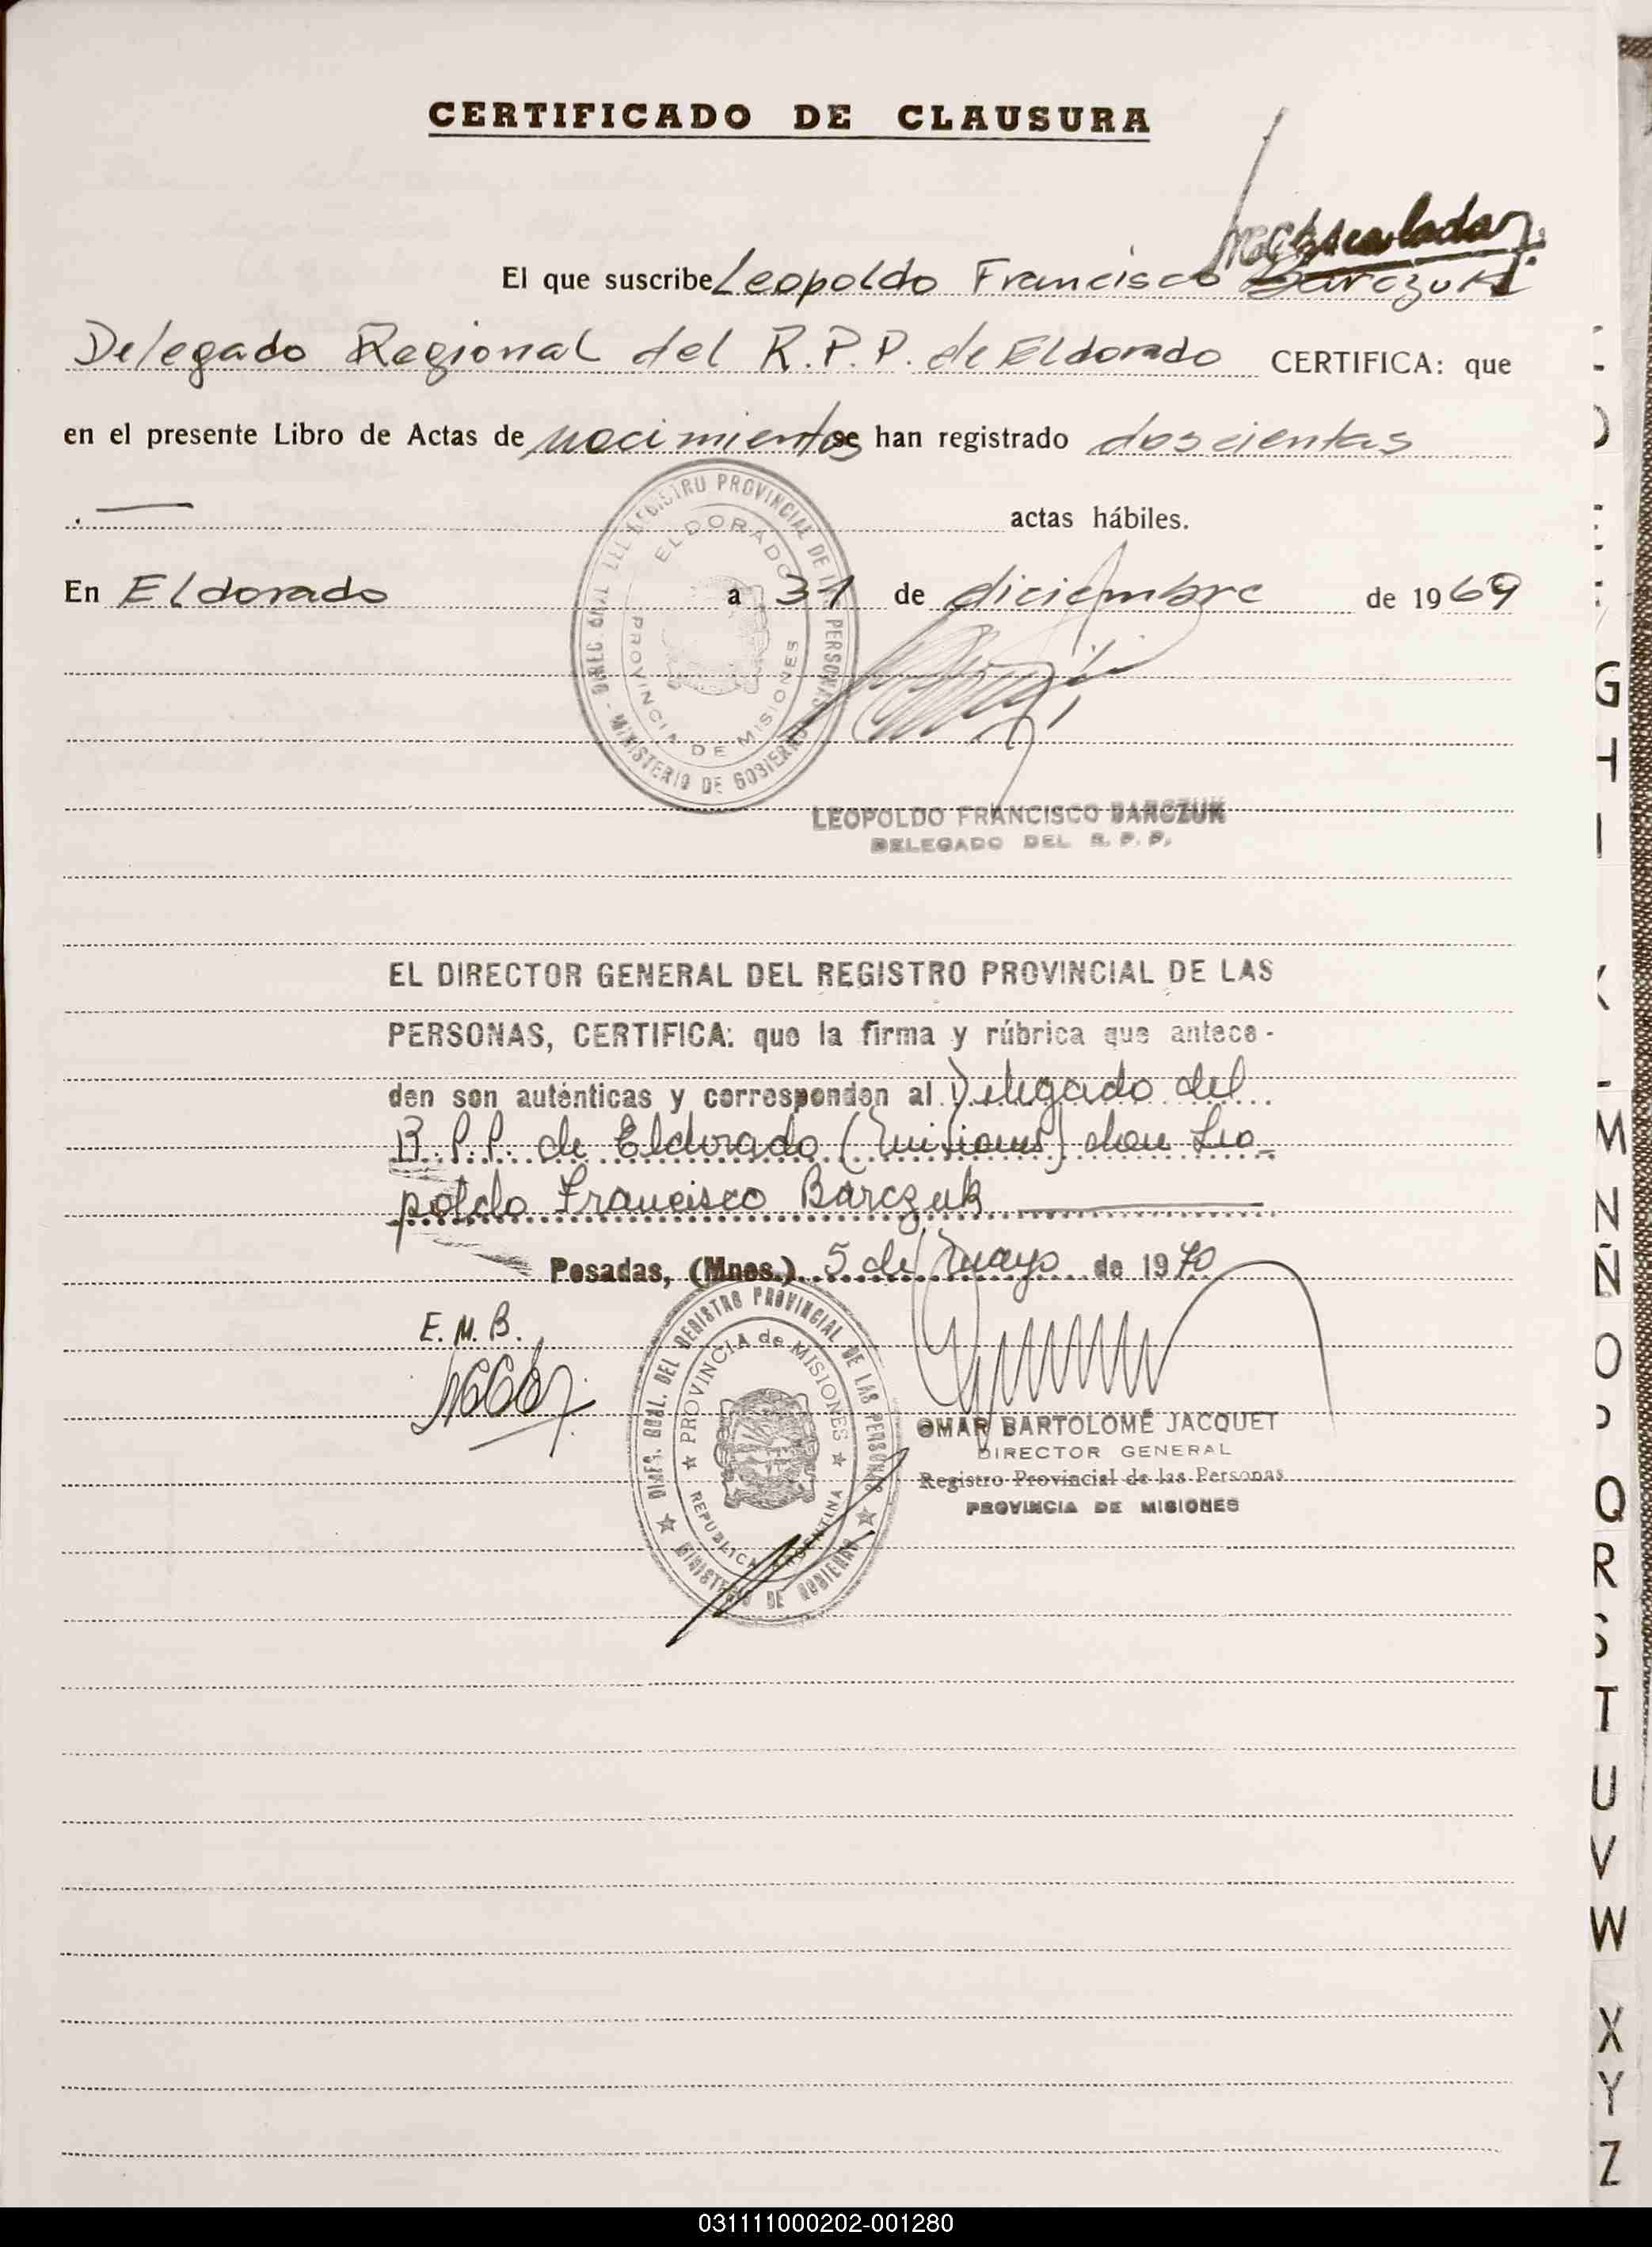 CERTIFICADO DE CLAUSURA
El que suscribe Leopoldo Francisco Barczuk
Delegado Regional del R.P.P. de Eldorado CERTIFICA: que
en el presente Libro de Actas de nacimientos se han registrado doscientas
. — actas hábiles.
En Eldorado a 31 de diciembre de 1969
DIREC. GRAL. DEL REGISTRO PROVINCIAL DE LAS PERSONAS - MINISTERIO DE GOBIERNO
ELDORADO
PROVINCIA DE MISIONES
LEOPOLDO FRANCISCO BARCZUK
DELEGADO DEL R. P. P.
EL DIRECTOR GENERAL DEL REGISTRO PROVINCIAL DE LAS
PERSONAS, CERTIFICA: que la firma y rúbrica que antece-
den son auténticas y corresponden al Delegado del
R.P.P. de Eldorado (Misiones) don Leo-
poldo Francisco Barczuk
Posadas, (Mnes.) 5 de mayo de 1970
E.M.B.
DIREC. GRAL. DEL REGISTRO PROVINCIAL DE LAS PERSONAS
MINISTERIO DE GOBIERNO
PROVINCIA de MISIONES
REPUBLICA ARGENTINA
OMAR BARTOLOMÉ JACQUET
DIRECTOR GENERAL
Registro Provincial de las Personas
PROVINCIA DE MISIONES
G
H
I
M
N
Ñ
O
P
Q
R
S
T
U
V
W
X
Y
Z
031111000202-001280